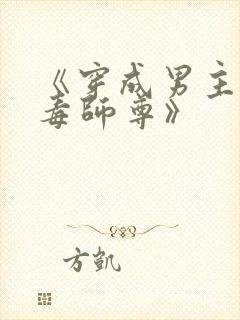 《穿成男主
毒師尊》
方凯